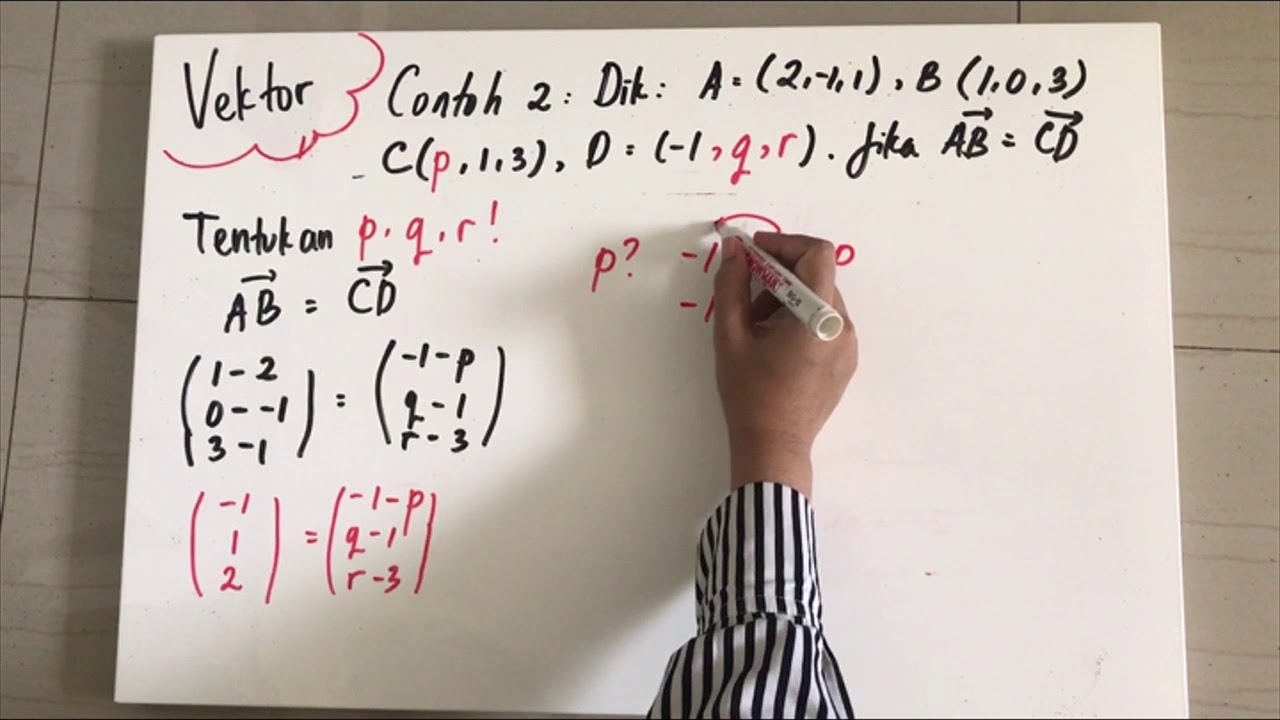 Vektor
Contoh 2 : Dik : A = (2,-1,1) , B (1,0,3)
C(p,1,3), D = (-1,q,r). Jika AB = CD
Tentukan p, q, r!
AB = CD
(1-2) = (-1-p)
(0--1) (q-1)
(3-1) (r-3)
(-1) = (-1-p)
(1) (q-1)
(2) (r-3)
p? -1 p
-1